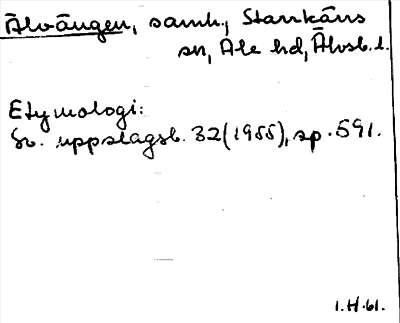 Älvängen, samh., Starrkärrs
sn, Ale hd, Älvsb. l.
Etymologi:
Sv. uppslagsb. 32 (1955), sp. 591.
1.H.61.